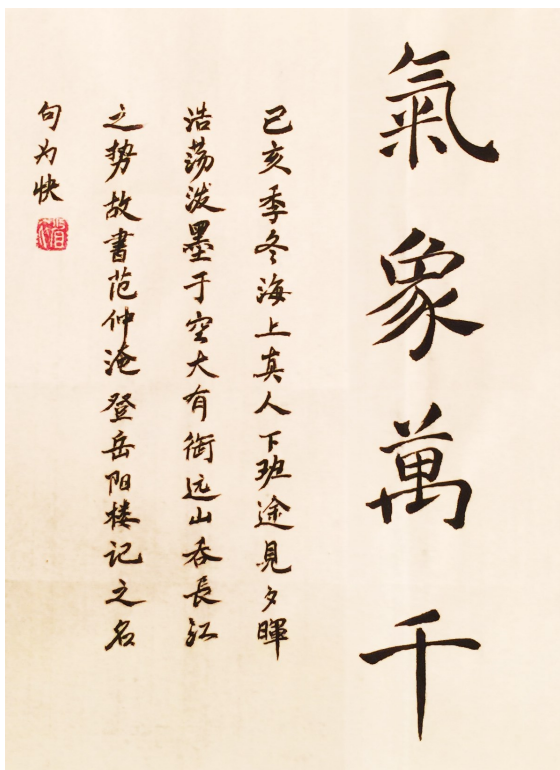 氣象萬千
己亥季冬海上真人下班途見夕暉
浩荡泼墨于空大有衔远山吞長江
之势故書范仲淹登岳阳楼记之名
句为快